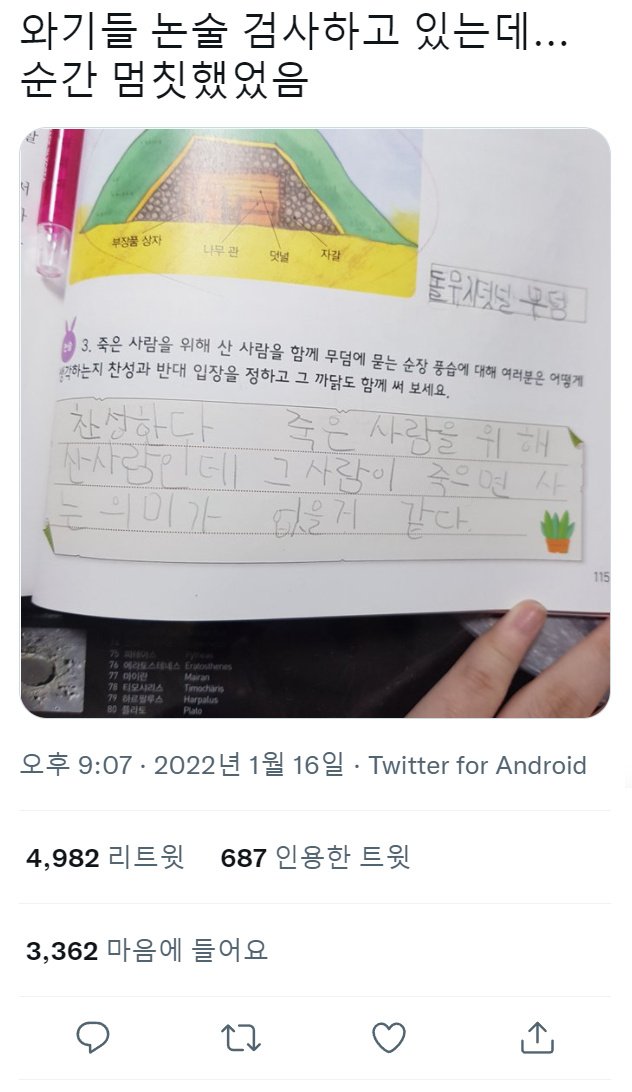 와기들 논술 검사하고 있는데...
순간 멈칫했었음
부장품 상자
나무 관
덧널
자갈
돌무지덧널 무덤
논술
3. 죽은 사람을 위해 산 사람을 함께 무덤에 묻는 순장 풍습에 대해 여러분은 어떻게
생각하는지 찬성과 반대 입장을 정하고 그 까닭도 함께 써 보세요.
찬성하다 죽은 사람을 위해
산사람인데 그 사람이 죽으면 사
는 의미가 없을거 같다.
115
75 피테아스 Pytheas
76 에라토스테네스 Eratosthenes
77 마이란 Mairan
78 티모샤리스 Timocharis
79 하르팔루스 Harpalus
80 플라토 Plato
오후 9:07 · 2022년 1월 16일 · Twitter for Android
4,982 리트윗 687 인용한 트윗
3,362 마음에 들어요